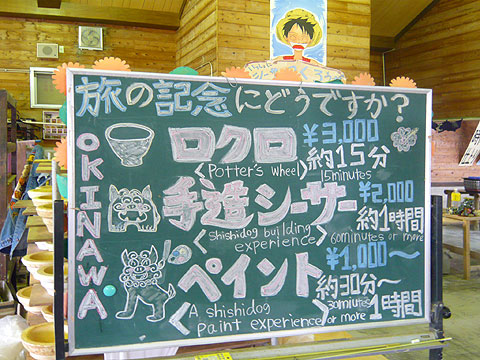 旅の記念にどうですか？
OKINAWA
ロクロ ¥3,000
<Potter's wheel> 約15分
15minutes
手造シーサー ¥2,000
<shishidog building experience> 約1時間
60minutes or more
ペイント ¥1,000〜
<A shishidog paint experience> 約30分〜1時間
30minutes or more